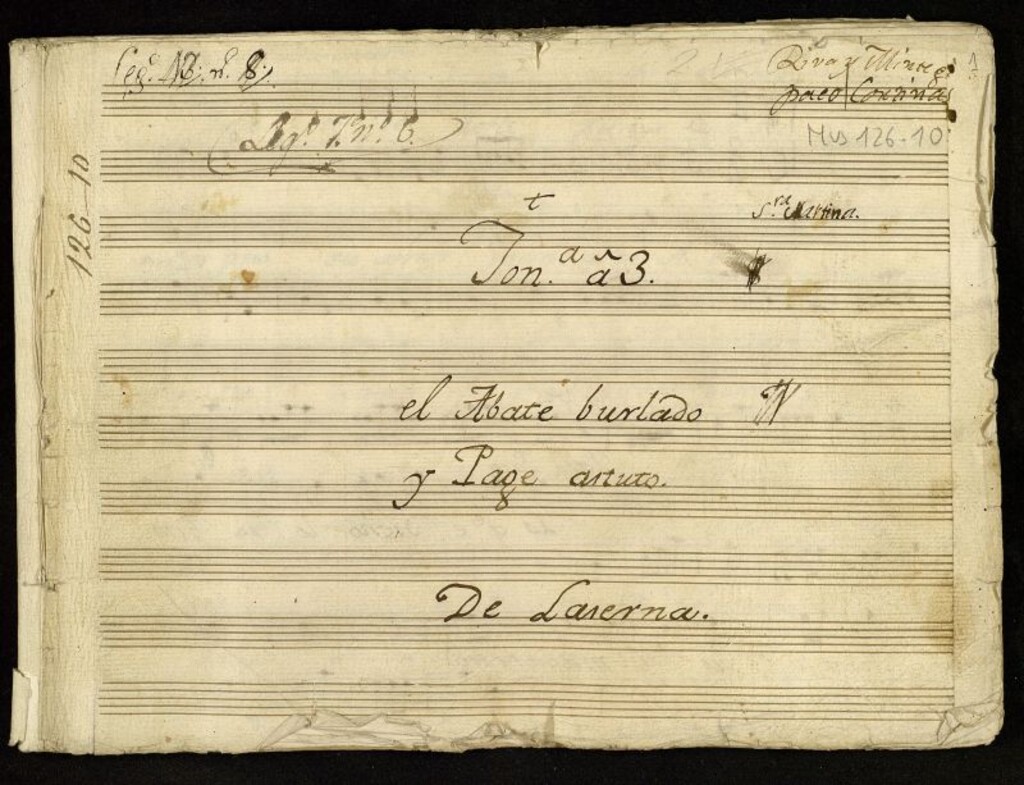 Leg.o 13. n.o 8.
Riva y Minteg
paco Contina
Leg.o 7. n.o 6.
Mus 126-10
126-10
t
S.ra Martina.
Ton.a à 3.
el Abate burlado
y Page astuto.
De Laserna.